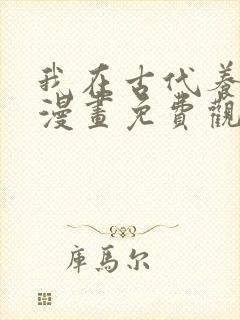 我在古代养
漫畫免費觀
庫馬尔